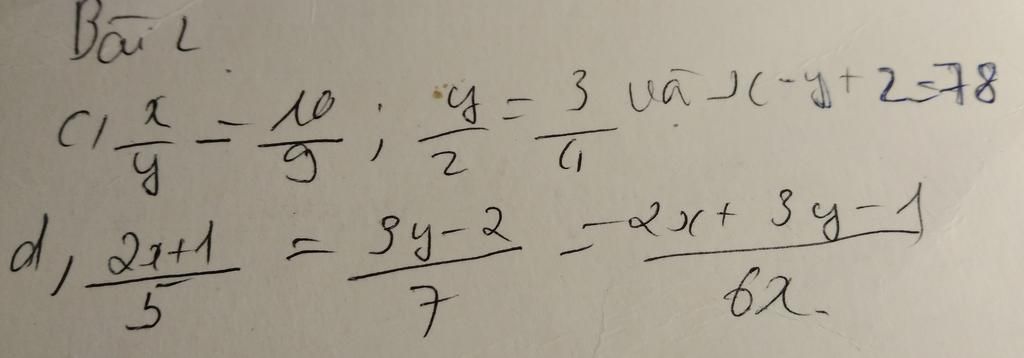 Bài 2
c, x/y = 10/9 ; y/2 = 3/4 và x-y+2=78
d, 2x+1/5 = 3y-2/7 = 2x+3y-1/6x.